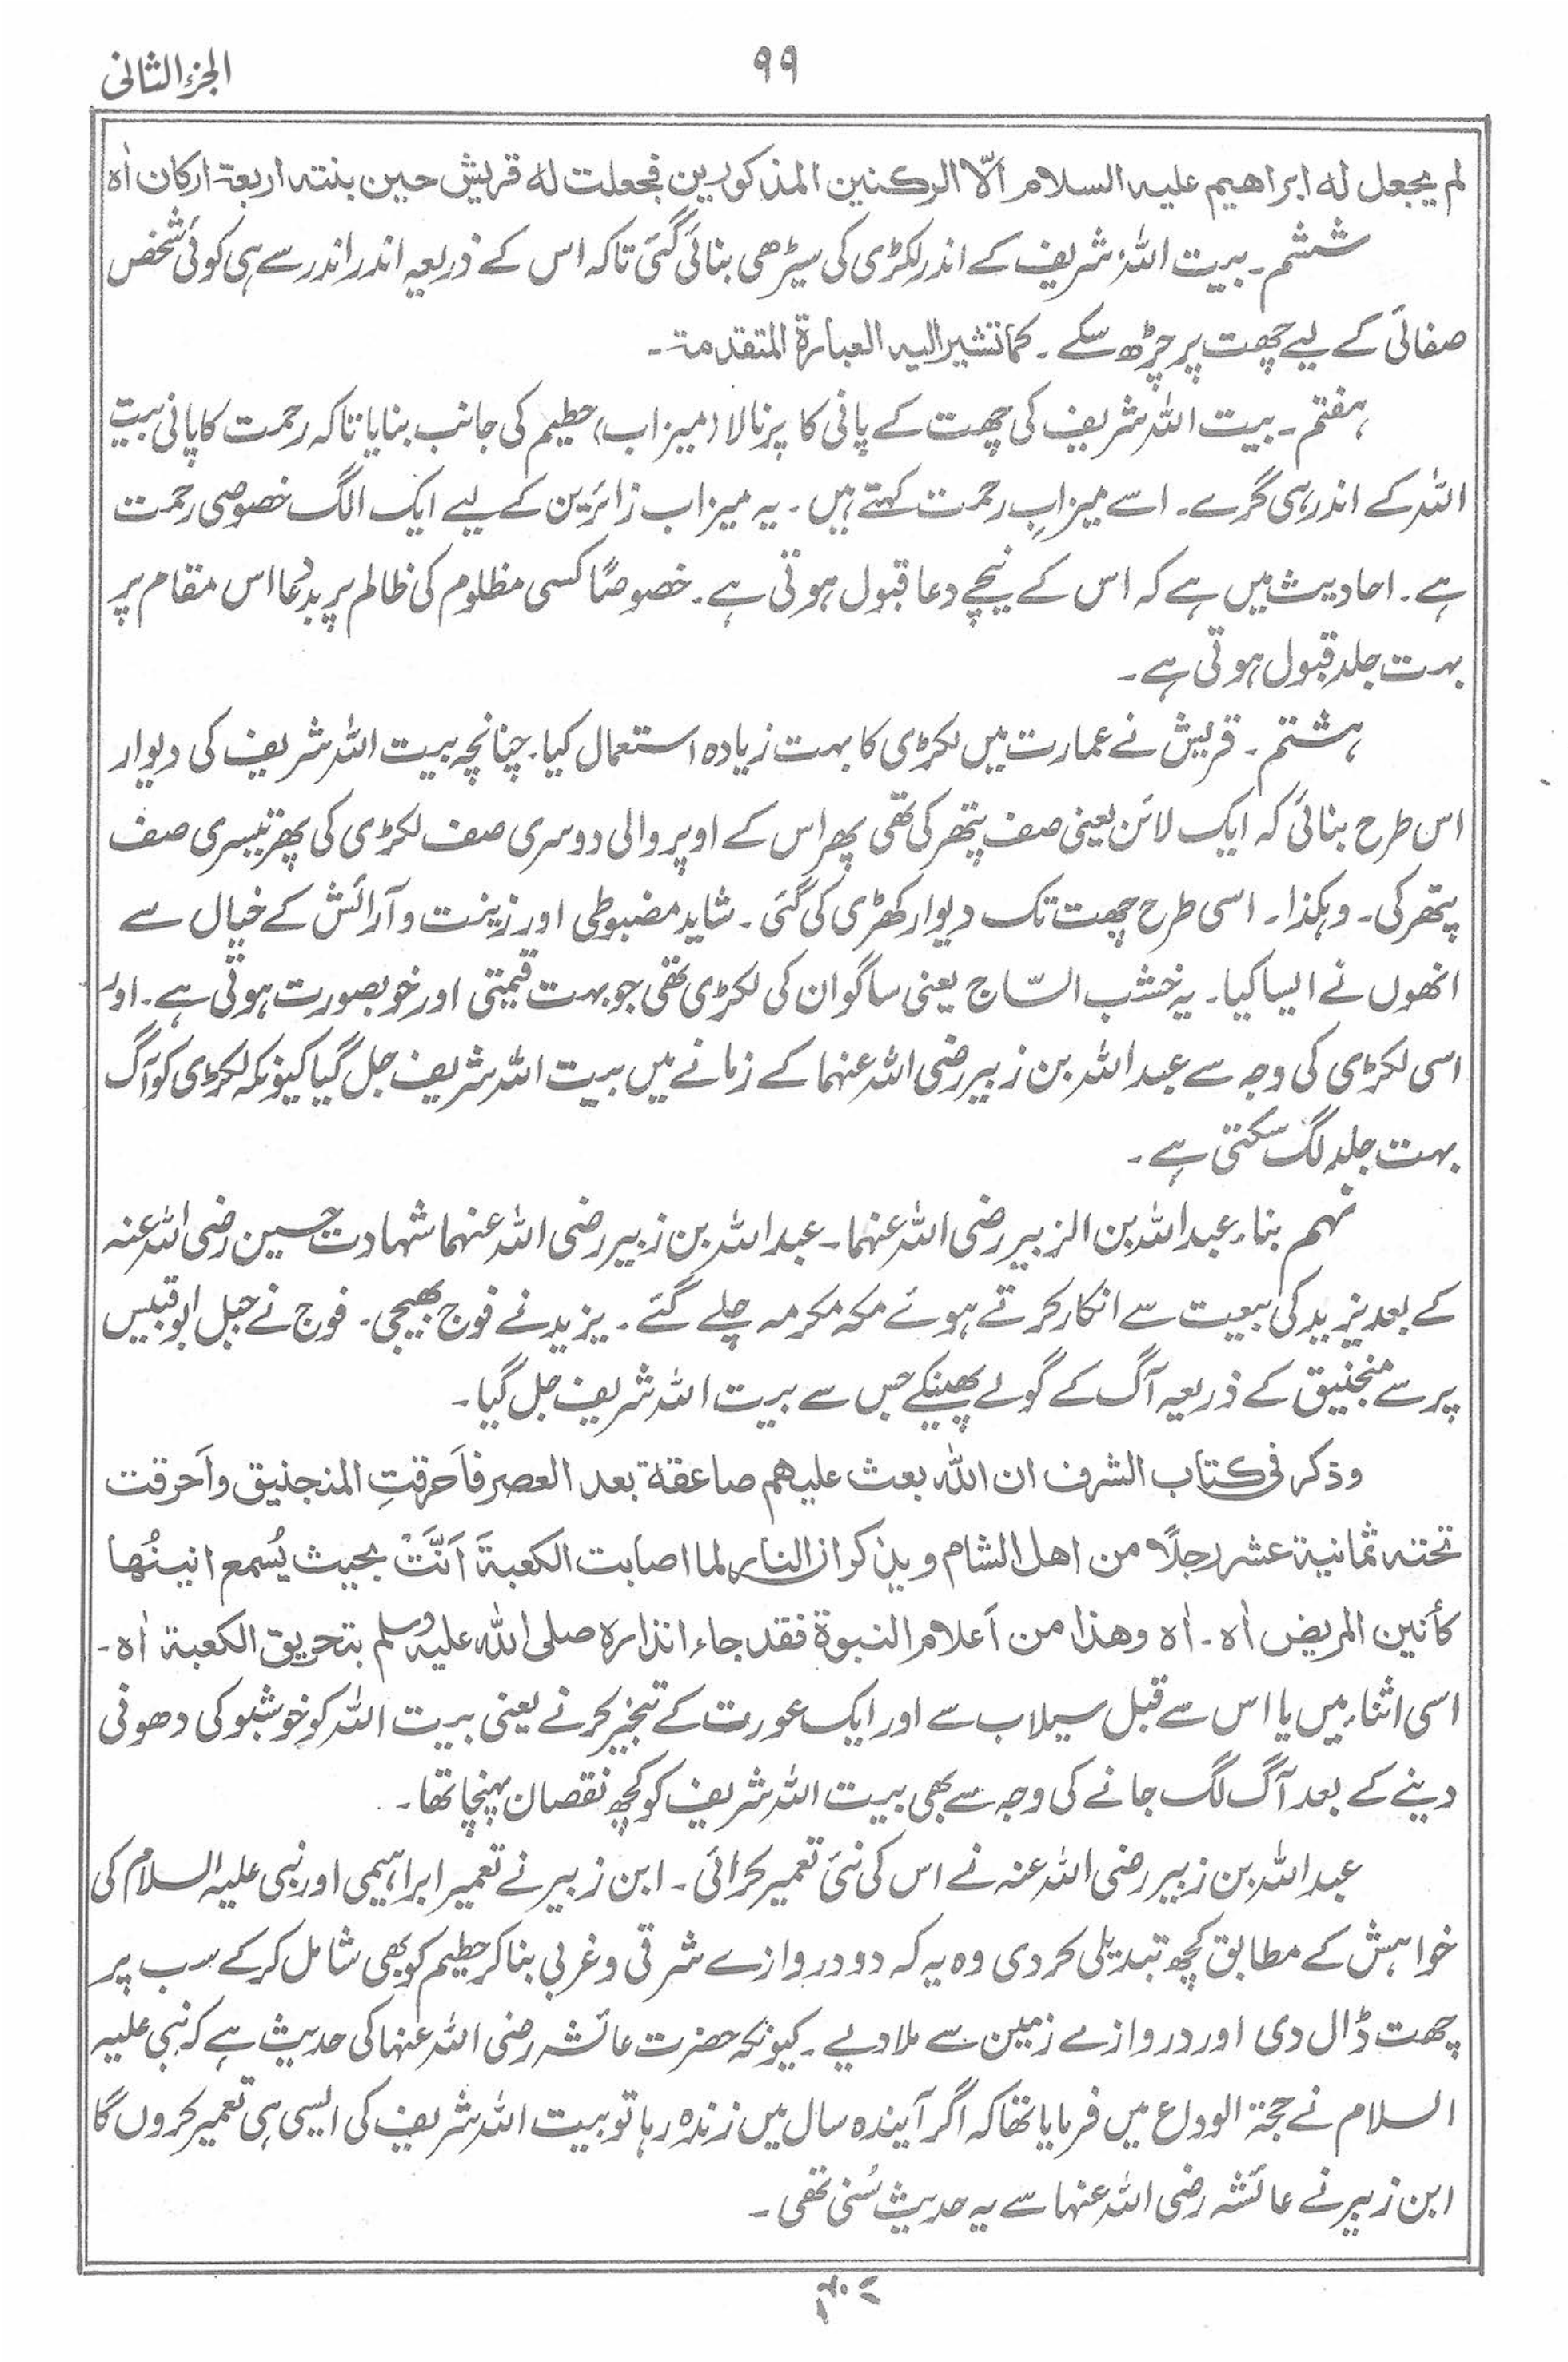 الجزء الثانی
۹۹
لم یجعل لہ ابراھیم علیہ السلام الّا الرکنین المذکورین فجعلت لہ قریش حین بنتہ اربعۃ ارکان اٰہ
ششم۔ بیت اللہ شریف کے اندر لکڑی کی سیڑھی بنائی گئی تاکہ اس کے ذریعہ اندر اندر سے ہی کوئی شخص
صفائی کے لیے چھت پر چڑھ سکے۔ کما تشیر الیہ العبارۃ المتقدمۃ۔
ہفتم۔ بیت اللہ شریف کی چھت کے پانی کا پرنالا (میزاب) حطیم کی جانب بنایا تاکہ رحمت کا پانی بیت
اللہ کے اندر ہی گرے۔ اسے میزابِ رحمت کہتے ہیں۔ یہ میزاب زائرین کے لیے ایک الگ خصوصی رحمت
ہے۔ احادیث میں ہے کہ اس کے نیچے دعا قبول ہوتی ہے۔ خصوصًا کسی مظلوم کی ظالم پر بددُعا اس مقام پر
بہت جلد قبول ہوتی ہے۔
ہشتم۔ قریش نے عمارت میں لکڑی کا بہت زیادہ استعمال کیا۔ چنانچہ بیت اللہ شریف کی دیوار
اس طرح بنائی کہ ایک لائن یعنی صف پتھر کی تھی پھر اس کے اوپر والی دوسری صف لکڑی کی پھر تیسری صف
پتھر کی۔ وہکذا۔ اسی طرح چھت تک دیوار کھڑی کی گئی۔ شاید مضبوطی اور زینت و آرائش کے خیال سے
انھوں نے ایسا کیا۔ یہ خشب السّاج یعنی ساگوان کی لکڑی تھی جو بہت قیمتی اور خوبصورت ہوتی ہے۔ اور
اسی لکڑی کی وجہ سے عبداللہ بن زبیر رضی اللہ عنہما کے زمانے میں بیت اللہ شریف جل گیا کیونکہ لکڑی کو آگ
بہت جلد لگ سکتی ہے۔
نہم بناء عبداللہ بن الزبیر رضی اللہ عنہما۔ عبداللہ بن زبیر رضی اللہ عنہما شہادت حسین رضی اللہ عنہ
کے بعد یزید کی بیعت سے انکار کرتے ہوئے مکہ مکرمہ چلے گئے۔ یزید نے فوج بھیجی۔ فوج نے جبل ابوقبیس
پر سے منجنیق کے ذریعہ آگ کے گولے پھینکے جس سے بیت اللہ شریف جل گیا۔
وذکر فی کتاب الشرف ان اللہ بعث علیھم صاعقۃ بعد العصر فاَحرقتِ المنجنیق واَحرقت
تحتہ ثمانیۃ عشر رجلًا من اھل الشام ویذکر ان النار لما اصابت الکعبۃَ اَنَّتْ بحیث یُسمع انینُھا
کأنین المریض اٰہ۔ اٰہ وھذا من اَعلام النبوۃ فقد جاء انذارہ صلی اللہ علیہ وسلم بتحریق الکعبۃ اٰہ۔
اسی اثناء میں یا اس سے قبل سیلاب سے اور ایک عورت کے تبخیر کرنے یعنی بیت اللہ کو خوشبو کی دھونی
دینے کے بعد آگ لگ جانے کی وجہ سے بھی بیت اللہ شریف کو کچھ نقصان پہنچا تھا۔
عبداللہ بن زبیر رضی اللہ عنہ نے اس کی نئی تعمیر کرائی۔ ابن زبیر نے تعمیر ابراہیمی اور نبی علیہ السلام کی
خواہش کے مطابق کچھ تبدیلی کر دی وہ یہ کہ دو دروازے شرقی و غربی بنا کر حطیم کو بھی شامل کر کے سب پر
چھت ڈال دی اور دروازے زمین سے ملا دیے۔ کیونکہ حضرت عائشہ رضی اللہ عنہا کی حدیث ہے کہ نبی علیہ
السلام نے حجۃ الوداع میں فرمایا تھا کہ اگر آیندہ سال میں زندہ رہا تو بیت اللہ شریف کی ایسی ہی تعمیر کروں گا
ابن زبیر نے عائشہ رضی اللہ عنہا سے یہ حدیث سُنی تھی۔